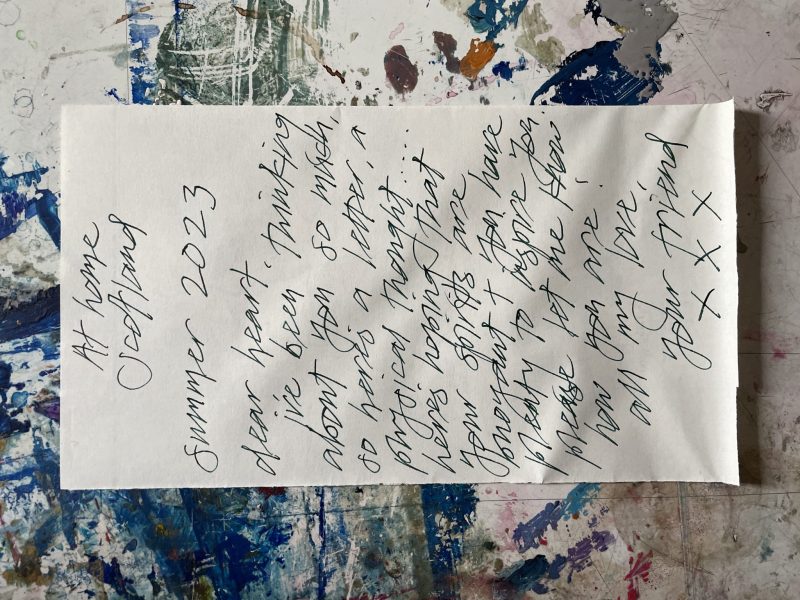 At home
Scotland
summer 2023
dear heart. Thinking
i've been thinking
about you so much,
so here's a letter, a
physical thought...
here's hoping that
your spirits are
bouyant + you have
plenty to inspire you.
please let me know
how you are.
all my love,
your friend
x x x